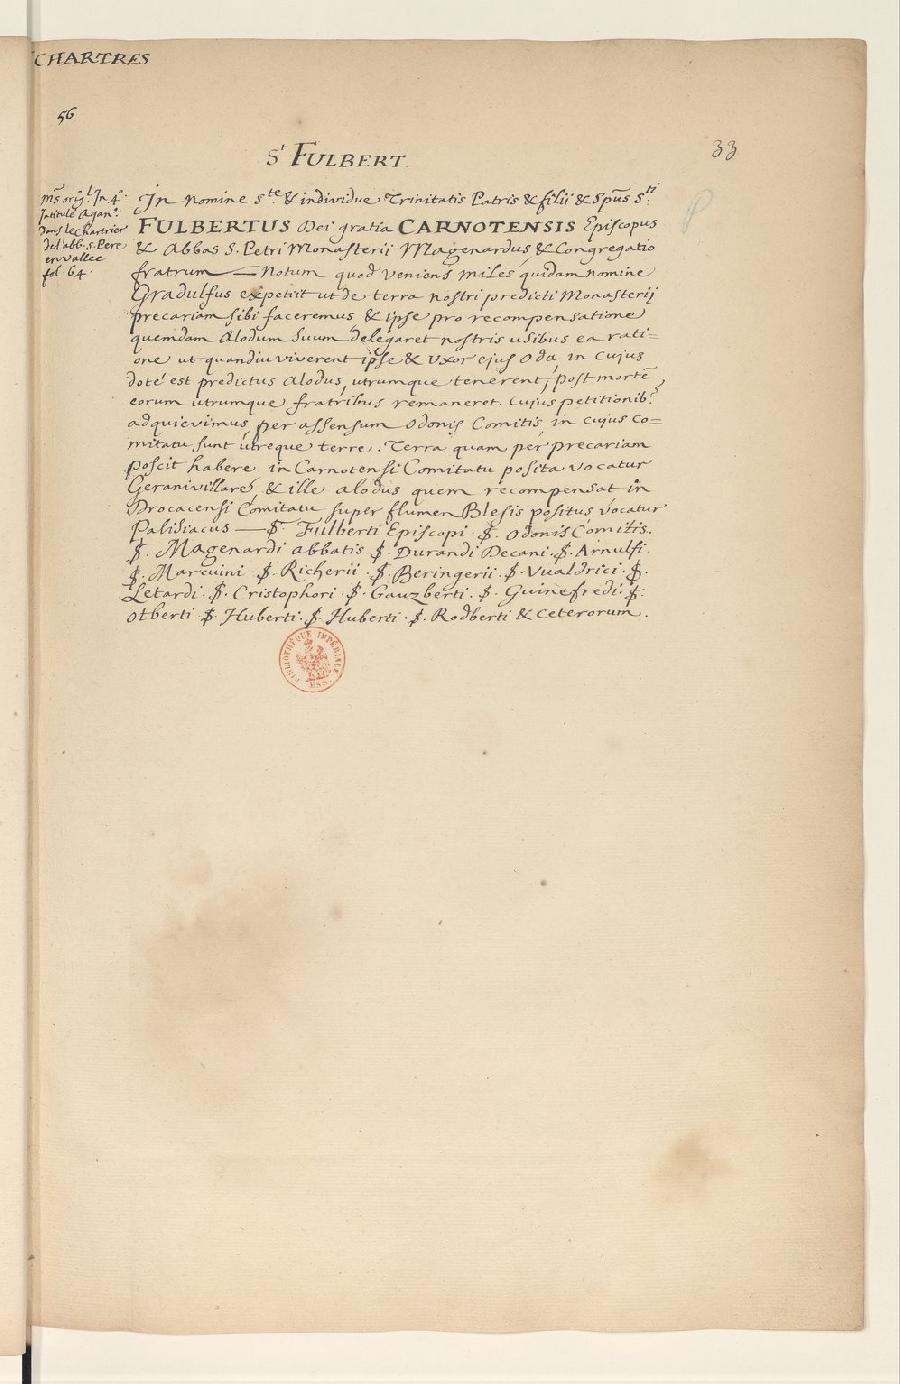 CHARTRES
56
33
S^t FULBERT
ms orig^l. In 4°.
Intitulé Agan°.
Dans le Chartrier
de l'abb. S. Pere
en vallée
fol. 64.
In nomine S^te & individue Trinitatis Patris & filii & Spūs S^ti.
FULBERTUS Dei gratia CARNOTENSIS Episcopus
& Abbas S. Petri Monasterii Magenardus & Congregatio
fratrum — Notum quod veniens miles quidam nomine
Gradulfus expetiit ut de terra nostri predicti Monasterij
precariam sibi faceremus & ipse pro recompensatione
quemdam Alodum suum delegaret nostris usibus ea rati=
one ut quandiu viverent ipse & Uxor ejus Oda in cujus
dotē est predictus alodus, utrumque tenerent, post mortē
eorum utrumque fratribus remaneret. Cujus petitionib.
adquievimus per assensum Odonis Comitis in cujus Co=
mitatu sunt utreque terre. Terra quam per precariam
poscit habere in Carnotensi Comitatu posita vocatur
Geranivillare, & ille alodus quem recompensat in
Drocacensi Comitatu super flumen Blesis positus vocatur
Palisiacus — S. Fulberti Episcopi. S. Odonis Comitis.
S. Magenardi abbatis S. Durandi Decani. S. Arnulfi.
S. Marcuini S. Richerii. S. Beringerii. S. Vualdrici. S.
Letardi. S. Cristophori. S. Gauzberti. S. Guinefredi. S.
Otberti. S. Huberti. S. Huberti. S. Rodberti & ceterorum.
BIBLIOTHÈQUE IMPÉRIALE
MSS.